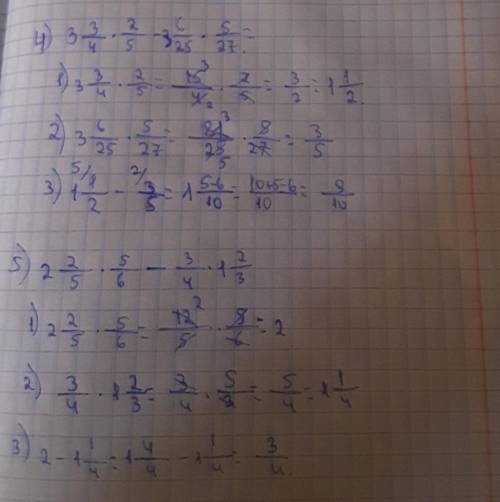 4) 3 3/4 · 2/5 - 3 6/25 · 5/27 =
1) 3 3/4 · 2/5 = 15/4 · 2/5 = 3/2 = 1 1/2.
2) 3 6/25 · 5/27 = 81/25 · 5/27 = 3/5
3) 1 1/2 - 3/5 = 1 5-6/10 = 10+5-6/10 = 9/10
5) 2 2/5 · 5/6 - 3/4 · 1 2/3
1) 2 2/5 · 5/6 = 12/5 · 5/6 = 2
2) 3/4 · 1 2/3 = 3/4 · 5/3 = 5/4 = 1 1/4
3) 2 - 1 1/4 = 1 4/4 - 1 1/4 = 3/4.